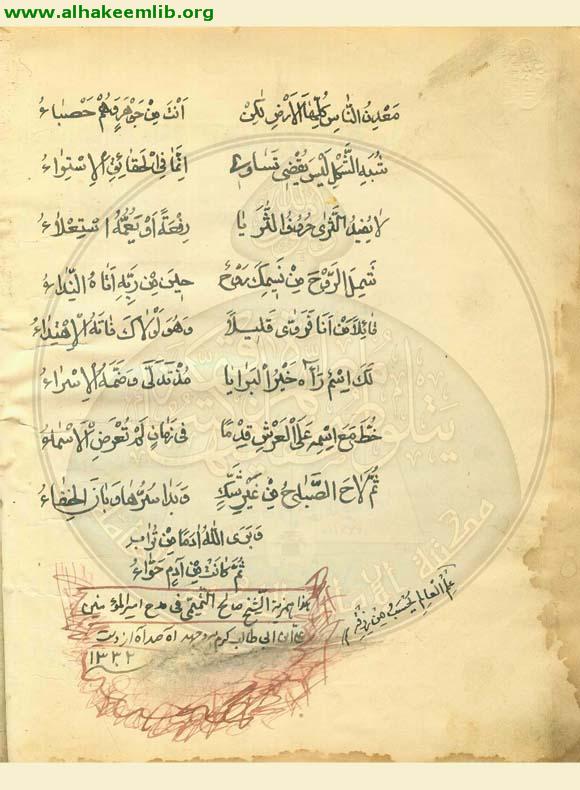 www.alhakeemlib.org
مَعْدِنُ النَّاسِ كُلِّهَا الْأَرْضُ لٰكِنْ أَنْتَ مِنْ جَوْهَرٍ وَهُمْ حَصْبَاءُ
شُبَهُ الشَّكْلِ لَيْسَ يَقْضِي تَسَاوِي إِنَّمَا فِي الْحَقَائِقِ الْإِسْتِوَاءُ
لَا يُفِيدُ الثَّرَى حُرُوفُ الثُّرَيَّا رِفْعَةً أَوْ يَعُمُّهُ اسْتِعْلَاءُ
شَمِلَ الرُّوحَ مِنْ نَسِيمِكَ رَوْحٌ حِينَ مِنْ رَبِّهِ أَتَاهُ النِّدَاءُ
قَائِلًا مَنْ أَنَا فَرَوَّى قَلِيلًا وَهُوَ لَوْلَاكَ فَاتَهُ الْإِهْتِدَاءُ
لَكَ اِسْمٌ رَآهُ خَيْرُ الْبَرَايَا مُذْ تَدَلَّى وَضَمَّهُ الْإِسْرَاءُ
خُطَّ مَعَ اِسْمِهِ عَلَى الْعَرْشِ قِدْمًا فِي زَمَانٍ لَمْ تُعْرَضِ الْأَسْمَاءُ
ثُمَّ لَاحَ الصَّبَاحُ مِنْ غَيْرِ شَكٍّ وَبَدَا سِرُّهَا وَبَانَ الْخَفَاءُ
وَبَرَى اللهُ آدَمًا مِنْ تُرَابٍ
ثُمَّ كَانَتْ مِنْ آدَمٍ حَوَّاءُ
هذا همزية الشيخ صالح التميمي في مدح امير المؤمنين
علي ابن ابي طالب كرم
١٣٢٢
علم العالم يحسب من رزقه